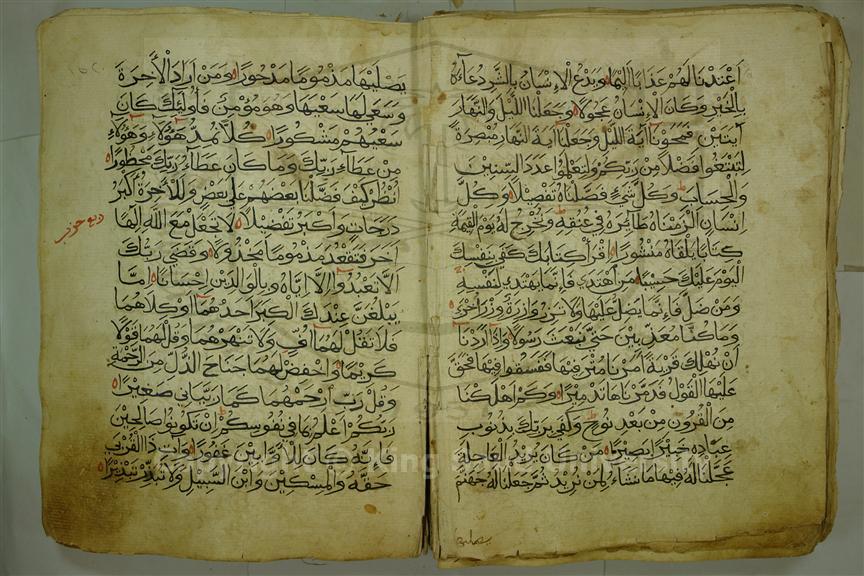 اعتدنا لهم عذابا اليما ويدع الانسان بالشر دعاءه
بالخير وكان الانسان عجولا وجعلنا الليل والنهار
آيتين فمحونا آية الليل وجعلنا آية النهار مبصرة
لتبتغوا فضلا من ربكم ولتعلموا عدد السنين
والحساب وكل شيء فصلناه تفصيلا وكل
انسان الزمناه طائره في عنقه ونخرج له يوم القيمة
كتابا يلقاه منشورا اقرأ كتابك كفى بنفسك
اليوم عليك حسيبا من اهتدى فانما يهتدي لنفسه
ومن ضل فانما يضل عليها ولا تزر وازرة وزر اخرى
وما كنا معذبين حتى نبعث رسولا واذا اردنا
ان نهلك قرية امرنا مترفيها ففسقوا فيها فحق
عليها القول فدمرناها تدميرا وكم اهلكنا
من القرون من بعد نوح وكفى بربك بذنوب
عباده خبيرا بصيرا من كان يريد العاجلة
عجلنا له فيها ما نشاء لمن نريد ثم جعلنا له جهنم
يصليها
يصليها مذموما مدحورا ومن اراد الآخرة
وسعى لها سعيها وهو مؤمن فاولئك كان
سعيهم مشكورا كلا نمد هؤلاء وهؤلاء
من عطاء ربك وما كان عطاء ربك محظورا
انظر كيف فضلنا بعضهم على بعض وللآخرة اكبر
درجات واكبر تفضيلا لا تجعل مع الله الها
آخر فتقعد مذموما مخذولا وقضى ربك
الا تعبدوا الا اياه وبالوالدين احسانا اما
يبلغن عندك الكبر احدهما او كلاهما
فلا تقل لهما اف ولا تنهرهما وقل لهما قولا
كريما واخفض لهما جناح الذل من الرحمة
وقل رب ارحمهما كما ربياني صغيرا
ربكم اعلم بما في نفوسكم ان تكونوا صالحين
فانه كان للاوابين غفورا وآت ذا القربى
حقه والمسكين وابن السبيل ولا تبذر تبذيرا
ربع حزب